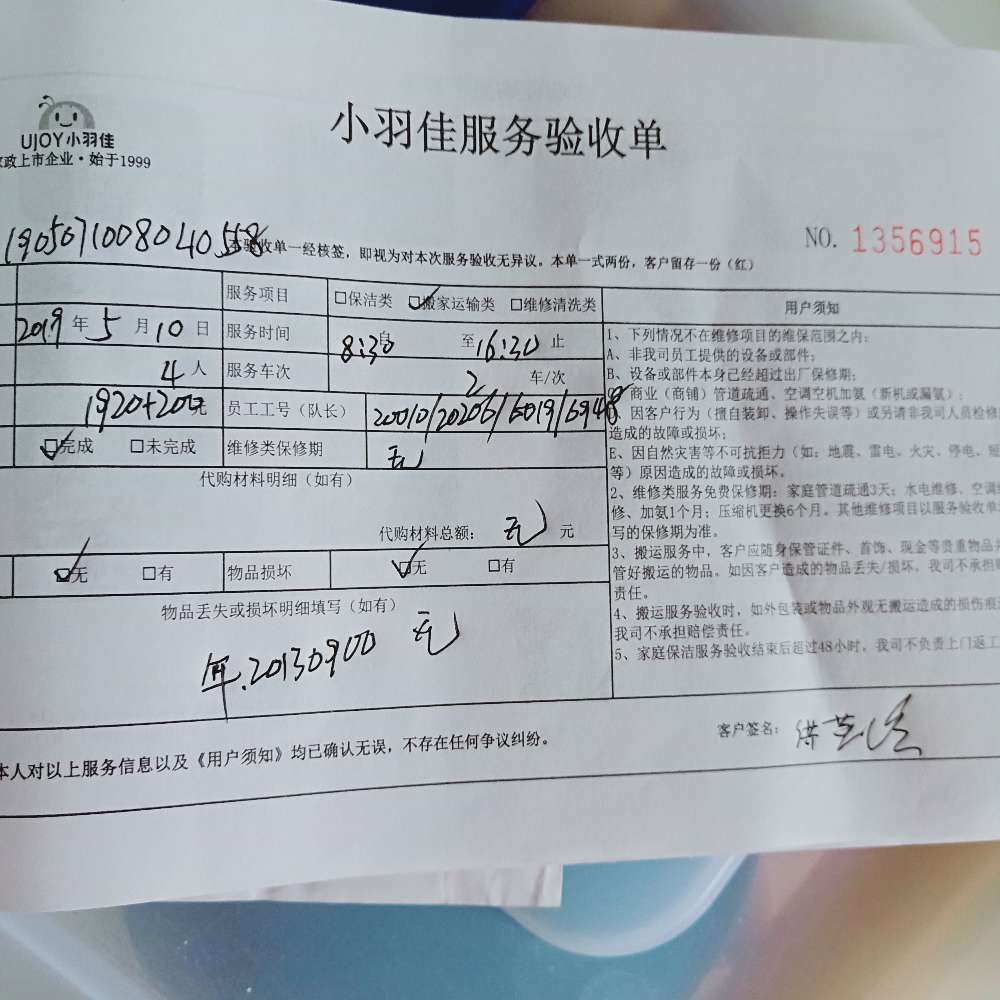 UJOY小羽佳
政上市企业·始于1999
小羽佳服务验收单
1905071008040558
NO. 1356915
本验收单一经核签，即视为对本次服务验收无异议。本单一式两份，客户留存一份（红）
服务项目 □保洁类 ☑搬家运输类 □维修清洗类
2019 年 5 月 10 日 服务时间 8:30 自 至 16:30 止
4 人 服务车次 2 车/次
1920+200元 员工工号（队长） 20010/20206/6019/6948
☑完成 □未完成 维修类保修期 无
代购材料明细（如有）
代购材料总额： 无 元
☑无 □有 物品损坏 ☑无 □有
物品丢失或损坏明细填写（如有）
.20130900 无
用户须知
1、下列情况不在维修项目的维保范围之内：
A、非我司员工提供的设备或部件；
B、设备或部件本身已经超过出厂保修期；
商业（商铺）管道疏通、空调空机加氨（新机或漏氨）；
因客户行为（擅自装卸、操作失误等）或另请非我司人员检修
造成的故障或损坏；
E、因自然灾害等不可抗拒力（如：地震、雷电、火灾、停电、短
等）原因造成的故障或损坏。
2、维修类服务免费保修期：家庭管道疏通3天；水电维修、空调
修、加氨1个月；压缩机更换6个月。其他维修项目以服务验收单
写的保修期为准。
3、搬运服务中，客户应随身保管证件、首饰、现金等贵重物品
管好搬运的物品。如因客户造成的物品丢失/损坏，我司不承担
责任。
4、搬运服务验收时，如外包装或物品外观无搬运造成的损伤痕
我司不承担赔偿责任。
5、家庭保洁服务验收结束后超过48小时，我司不负责上门返工
本人对以上服务信息以及《用户须知》均已确认无误，不存在任何争议纠纷。
客户签名：